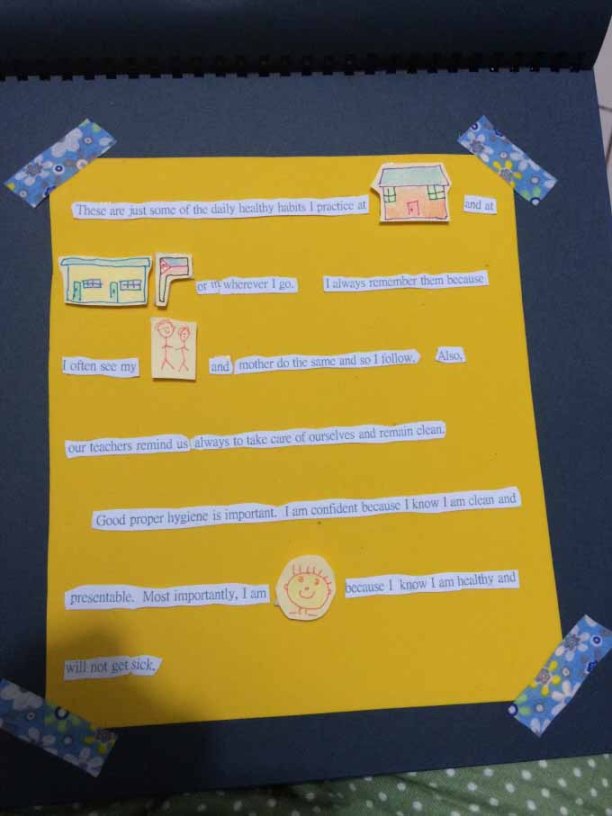 These are just some of the daily healthy habits I practice at and at
or in wherever I go. I always remember them because
I often see my and mother do the same and so I follow. Also,
our teachers remind us always to take care of ourselves and remain clean.
Good proper hygiene is important. I am confident because I know I am clean and
presentable. Most importantly, I am because I know I am healthy and
will not get sick.